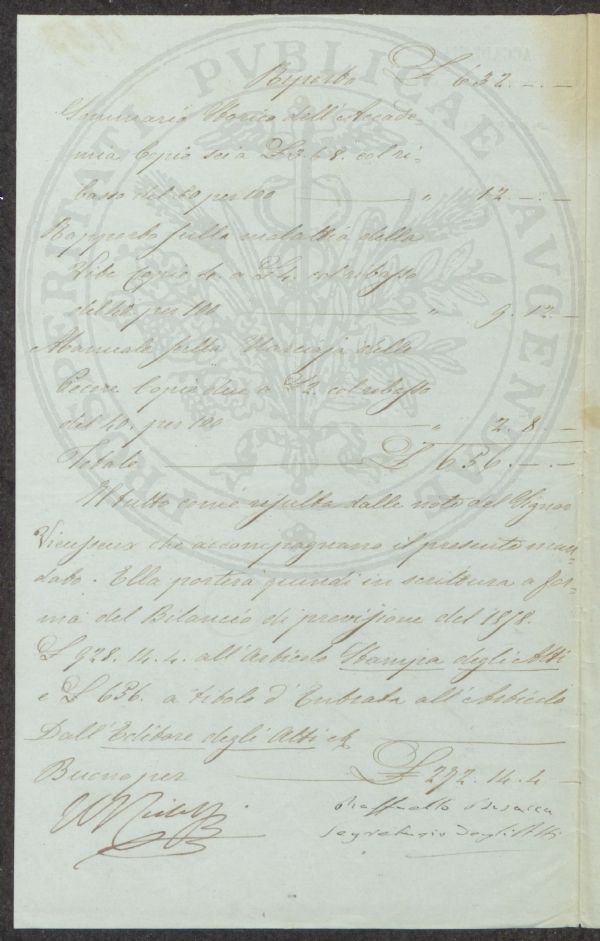 PROSPERITATI PVBLICAE AVGENDAE
Riporto £ 632. -. -
Sommario Storico dell'Accade-
mia Copie sei a £ 3.6.8. col ri-
basso del 40 per 100 " 12 -. -
Rapporto sulla malattia della
Vite Copie 4. a £ 4. col ribasso
del 40 per 100 " 9. 12. -
Manuale sulla delle
Pecore Copie due a £ 2. col ribasso
del 40. per 100 " 2. 8 -
Totale £ 656. -. -
Il tutto come resulta dalle note del Signor
Vieusseux che accompagnano il presente man-
dato. Ella porterà quindi in scrittura a for-
ma del Bilancio di previsione del 1858.
£ 928. 14. 4. all'Articolo Stampa degli Atti
e £ 656. a titolo d'Entrata all'Articolo
Dall'Editore degli Atti
Buono per £ 272. 14. 4 -
Raffaello Busacca
Segretario degli Atti